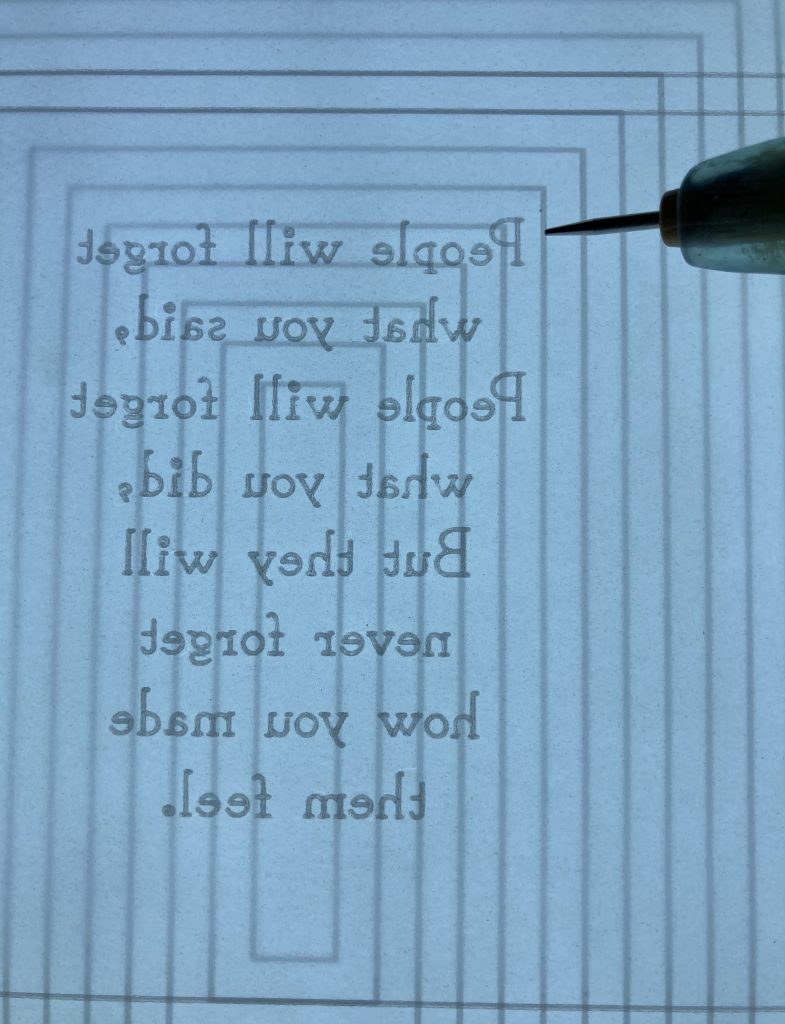 People will forget
what you said,
People will forget
what you did,
But they will
never forget
how you made
them feel.